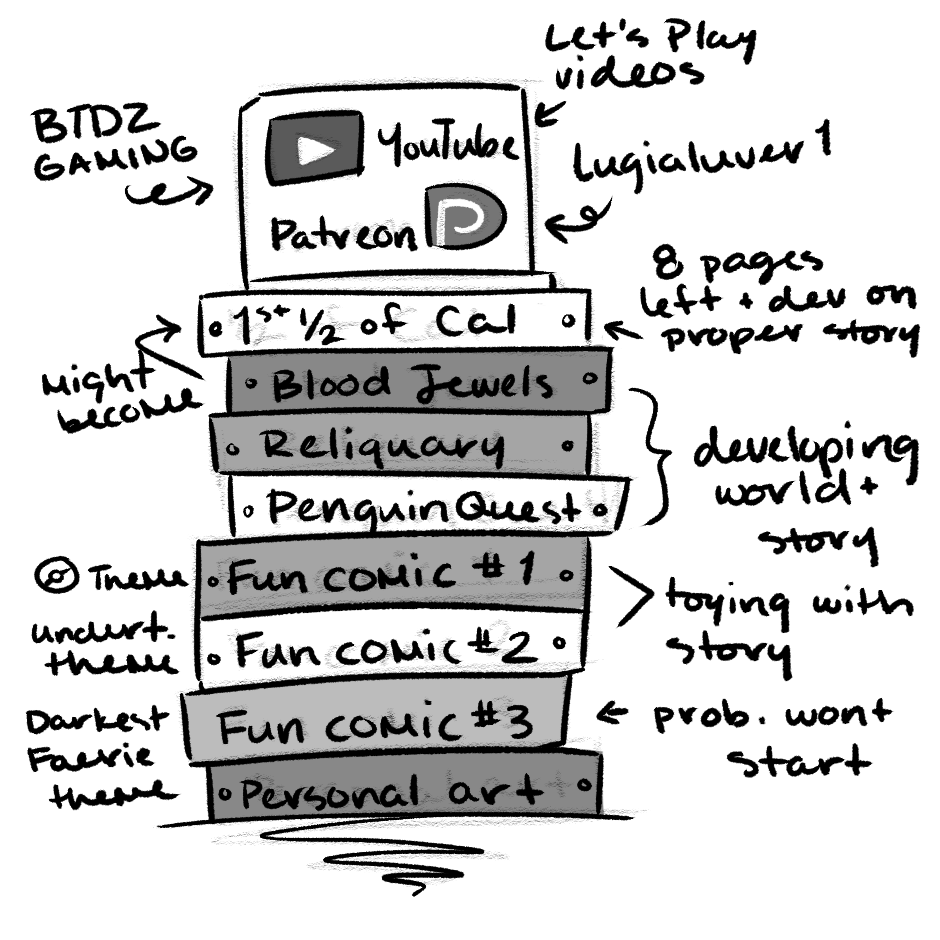 Let's Play
videos
BTDZ
GAMING
YouTube
Lugialuver1
Patreon
8 pages
left + dev on
proper story
1st 1/2 of Cal
Might
become
Blood Jewels
Reliquary
PenguinQuest
developing
world +
story
Theme
Fun comic #1
toying with
story
undert.
theme
Fun comic #2
Darkest
Faerie
theme
Fun comic #3
prob. wont
start
Personal art